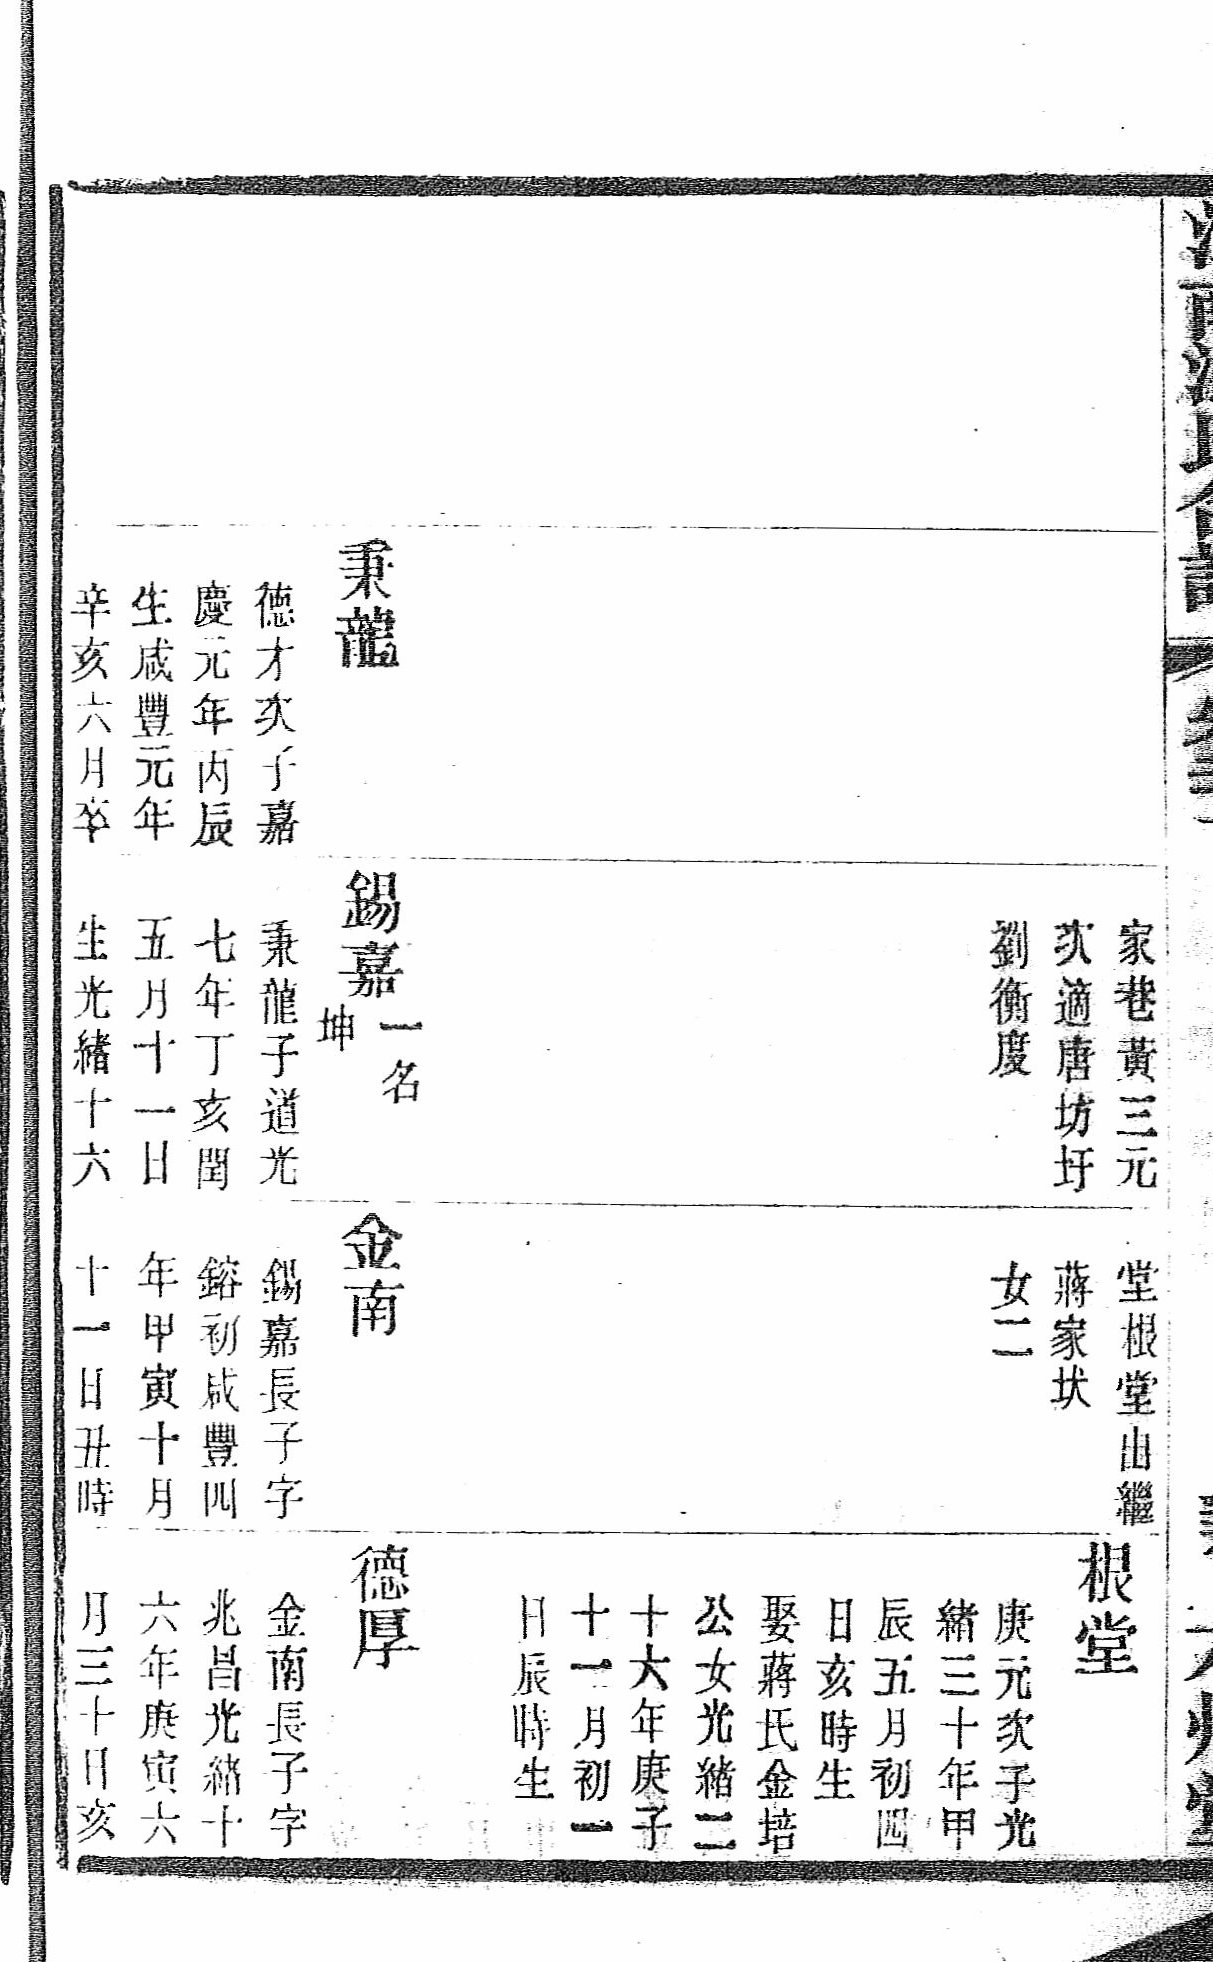 家巷黃三元
次適唐坊圩
劉衡度
堂根堂出繼
蔣家狀
女二
根堂
庚元次子光
緒三十年甲
辰五月初四
日亥時生
娶蔣氏金培
公女光緒二
十六年庚子
十一月初一
日辰時生
秉龍
德才次子嘉
慶元年丙辰
生咸豐元年
辛亥六月卒
錫嘉
一名
坤
秉龍子道光
七年丁亥閏
五月十一日
生光緒十六
金南
錫嘉長子字
鎔初咸豐四
年甲寅十月
十一日丑時
德厚
金南長子字
兆昌光緒十
六年庚寅六
月三十日亥